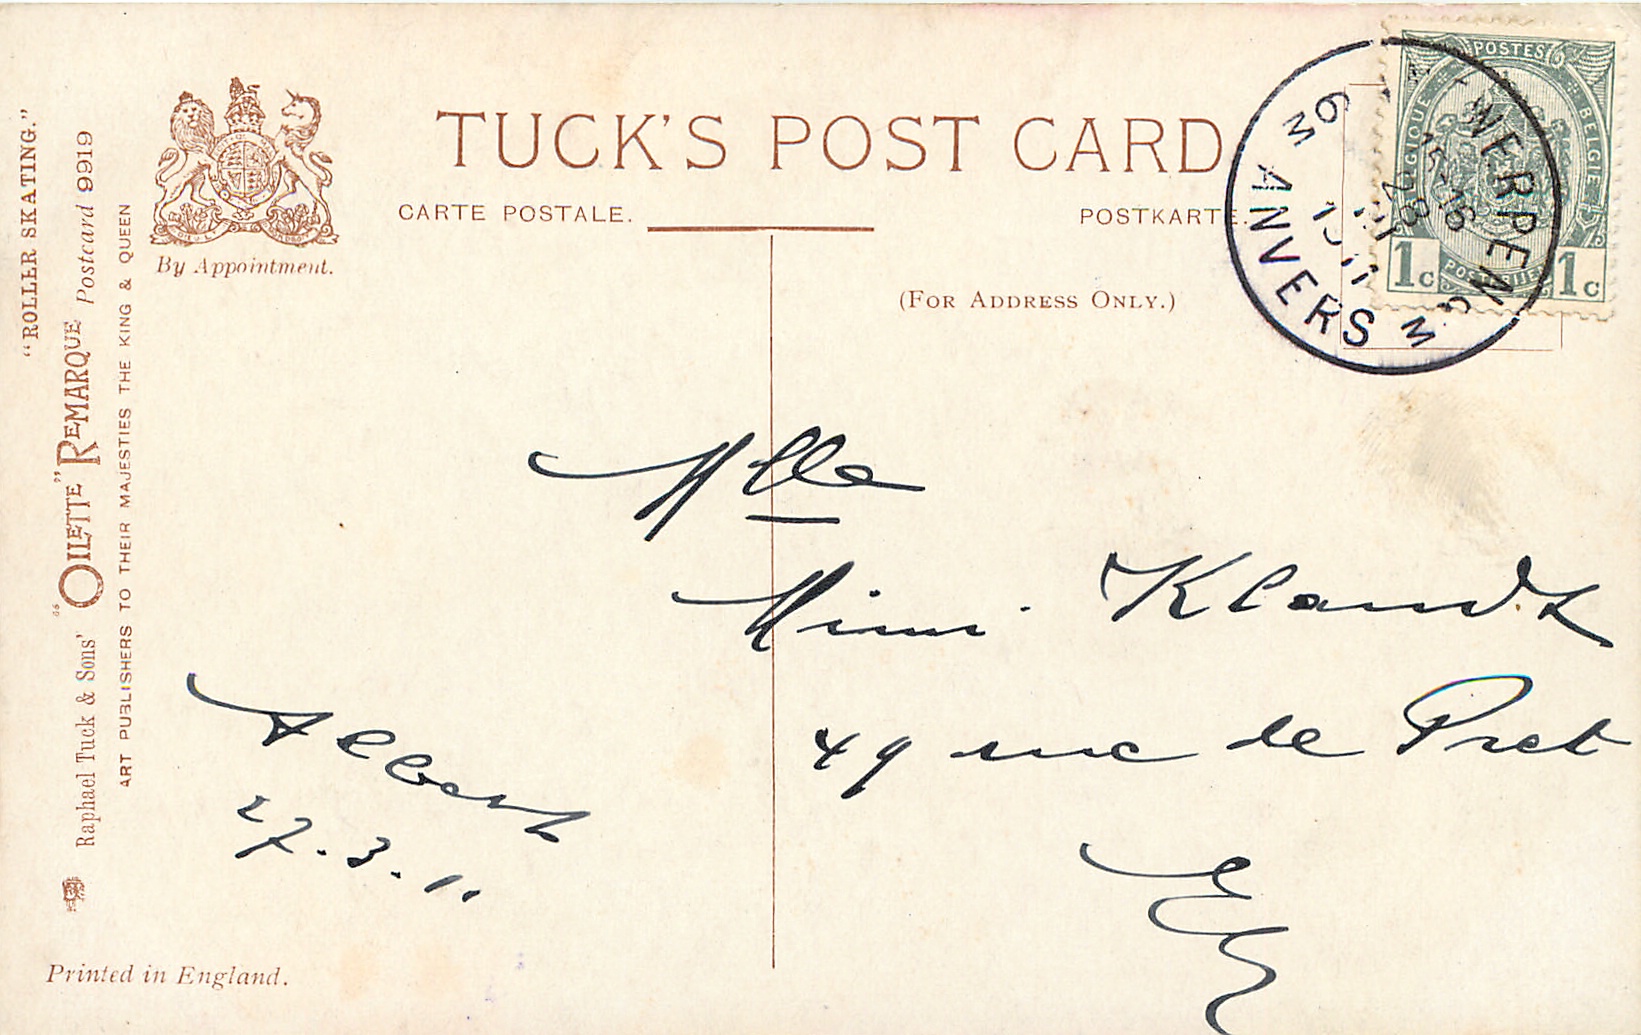 "ROLLER SKATING."
Raphael Tuck & Sons' "OILETTE" REMARQUE Postcard 9919
ART PUBLISHERS TO THEIR MAJESTIES THE KING & QUEEN
By Appointment.
TUCK'S POST CARD
CARTE POSTALE.
POSTKARTE.
(FOR ADDRESS ONLY.)
POSTES
BELGIQUE
BELGIE
POSTERIJEN
1c
1c
6 M ANVERS M
ANTWERPEN 6
15-16
28 III
1911
Mlle
Mimi Klandt
49 rue de Pret
Albert
27.3.11
Printed in England.